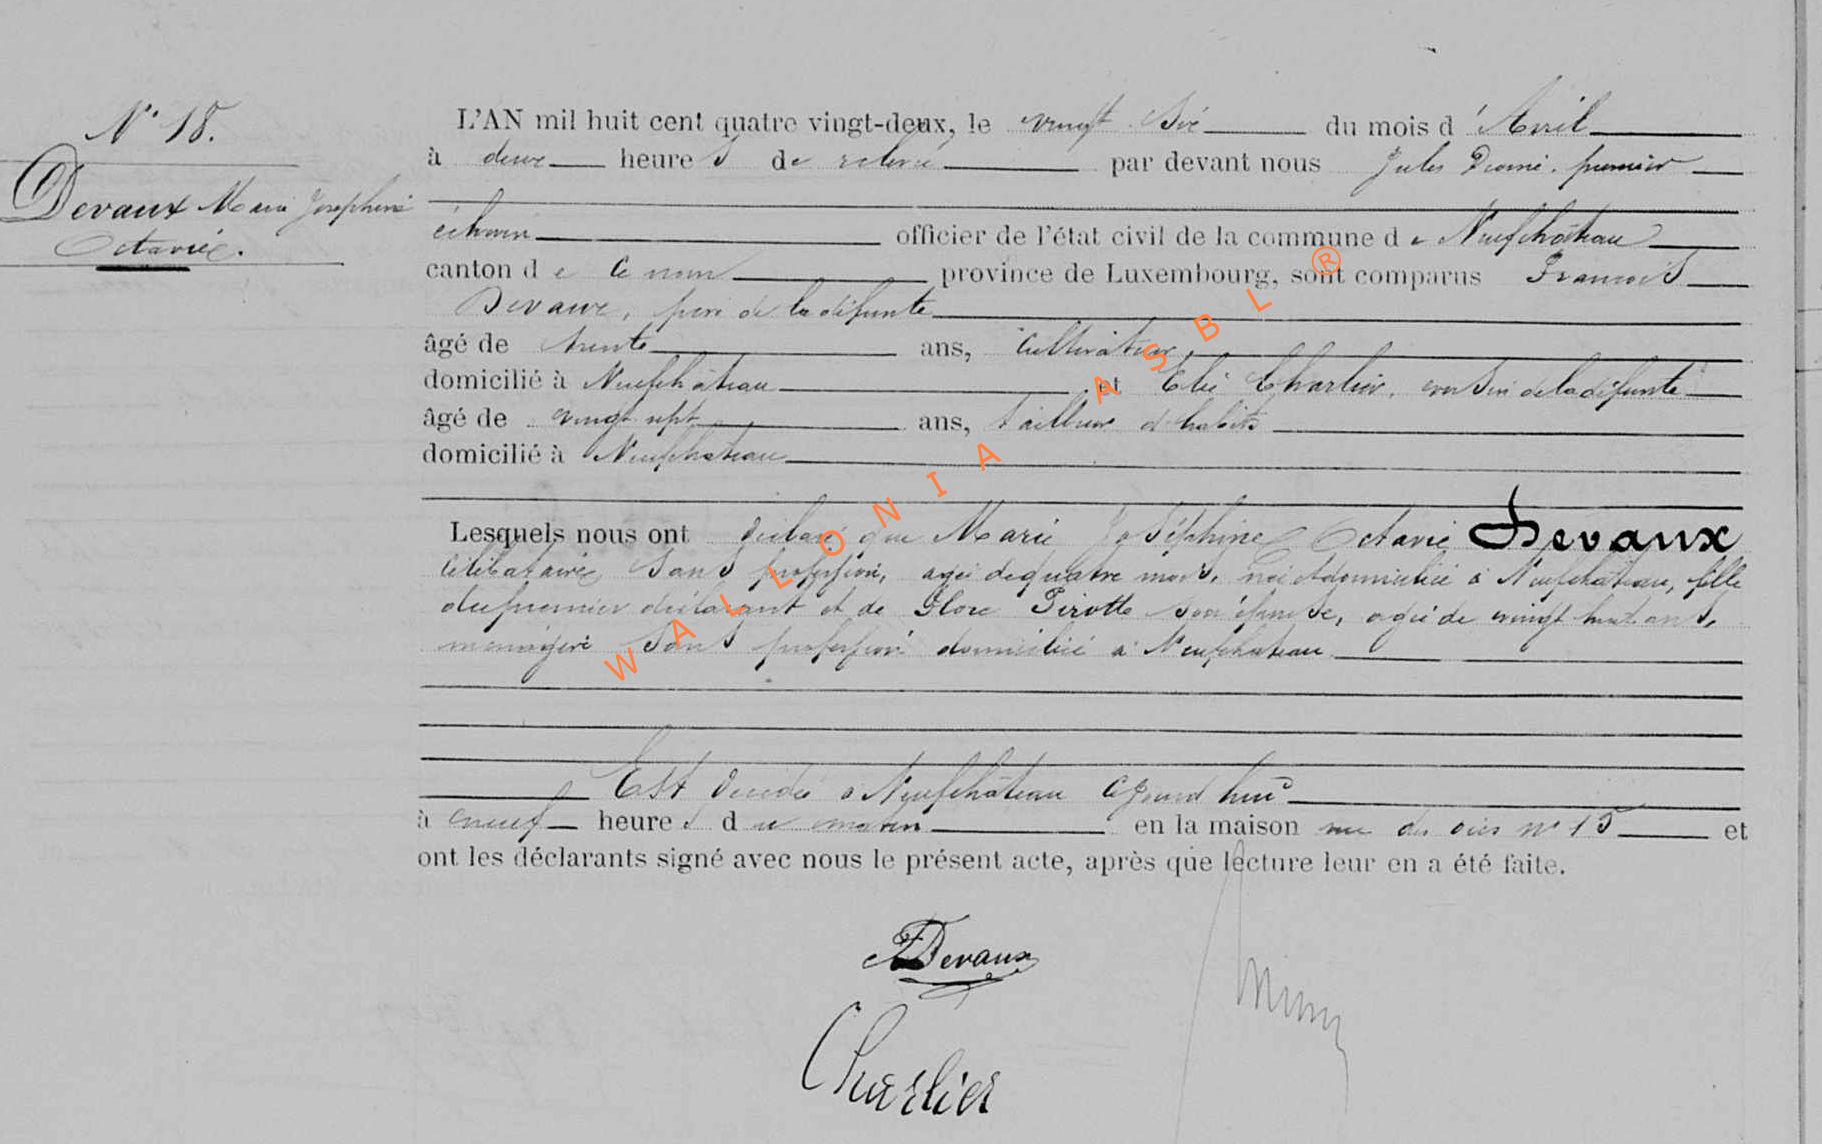 N° 18.
Devaux Marie Joséphine
Octavie.
L'AN mil huit cent quatre vingt-deux, le vingt Six du mois d'Avril
à deux heures de relevée par devant nous Jules premier
échevin officier de l'état civil de la commune de Neufchâteau
canton de Ce nom province de Luxembourg, sont comparus François
Devaux, père de la défunte
âgé de trente ans, Cultivateur,
domicilié à Neufchâteau et Elie Charlier, cousin de la défunte
âgé de vingt sept ans, tailleur d'habits
domicilié à Neufchateau
Lesquels nous ont déclaré que Marie Joséphine Octavie Devaux
Célibataire Sans profession, agée de quatre mois, née et domiciliée à Neufchâteau, fille
du premier déclarant et de Flore Pirotte Son épouse, agée de vingt huit ans,
menagère Sans profession domiciliée à Neufchateau
Est décédée à Neufchâteau aujourd'hui
à neuf heures du matin en la maison rue des oies n° 15 et
ont les déclarants signé avec nous le présent acte, après que lecture leur en a été faite.
FDevaux
Charlier
WALLONIA ASBL ®